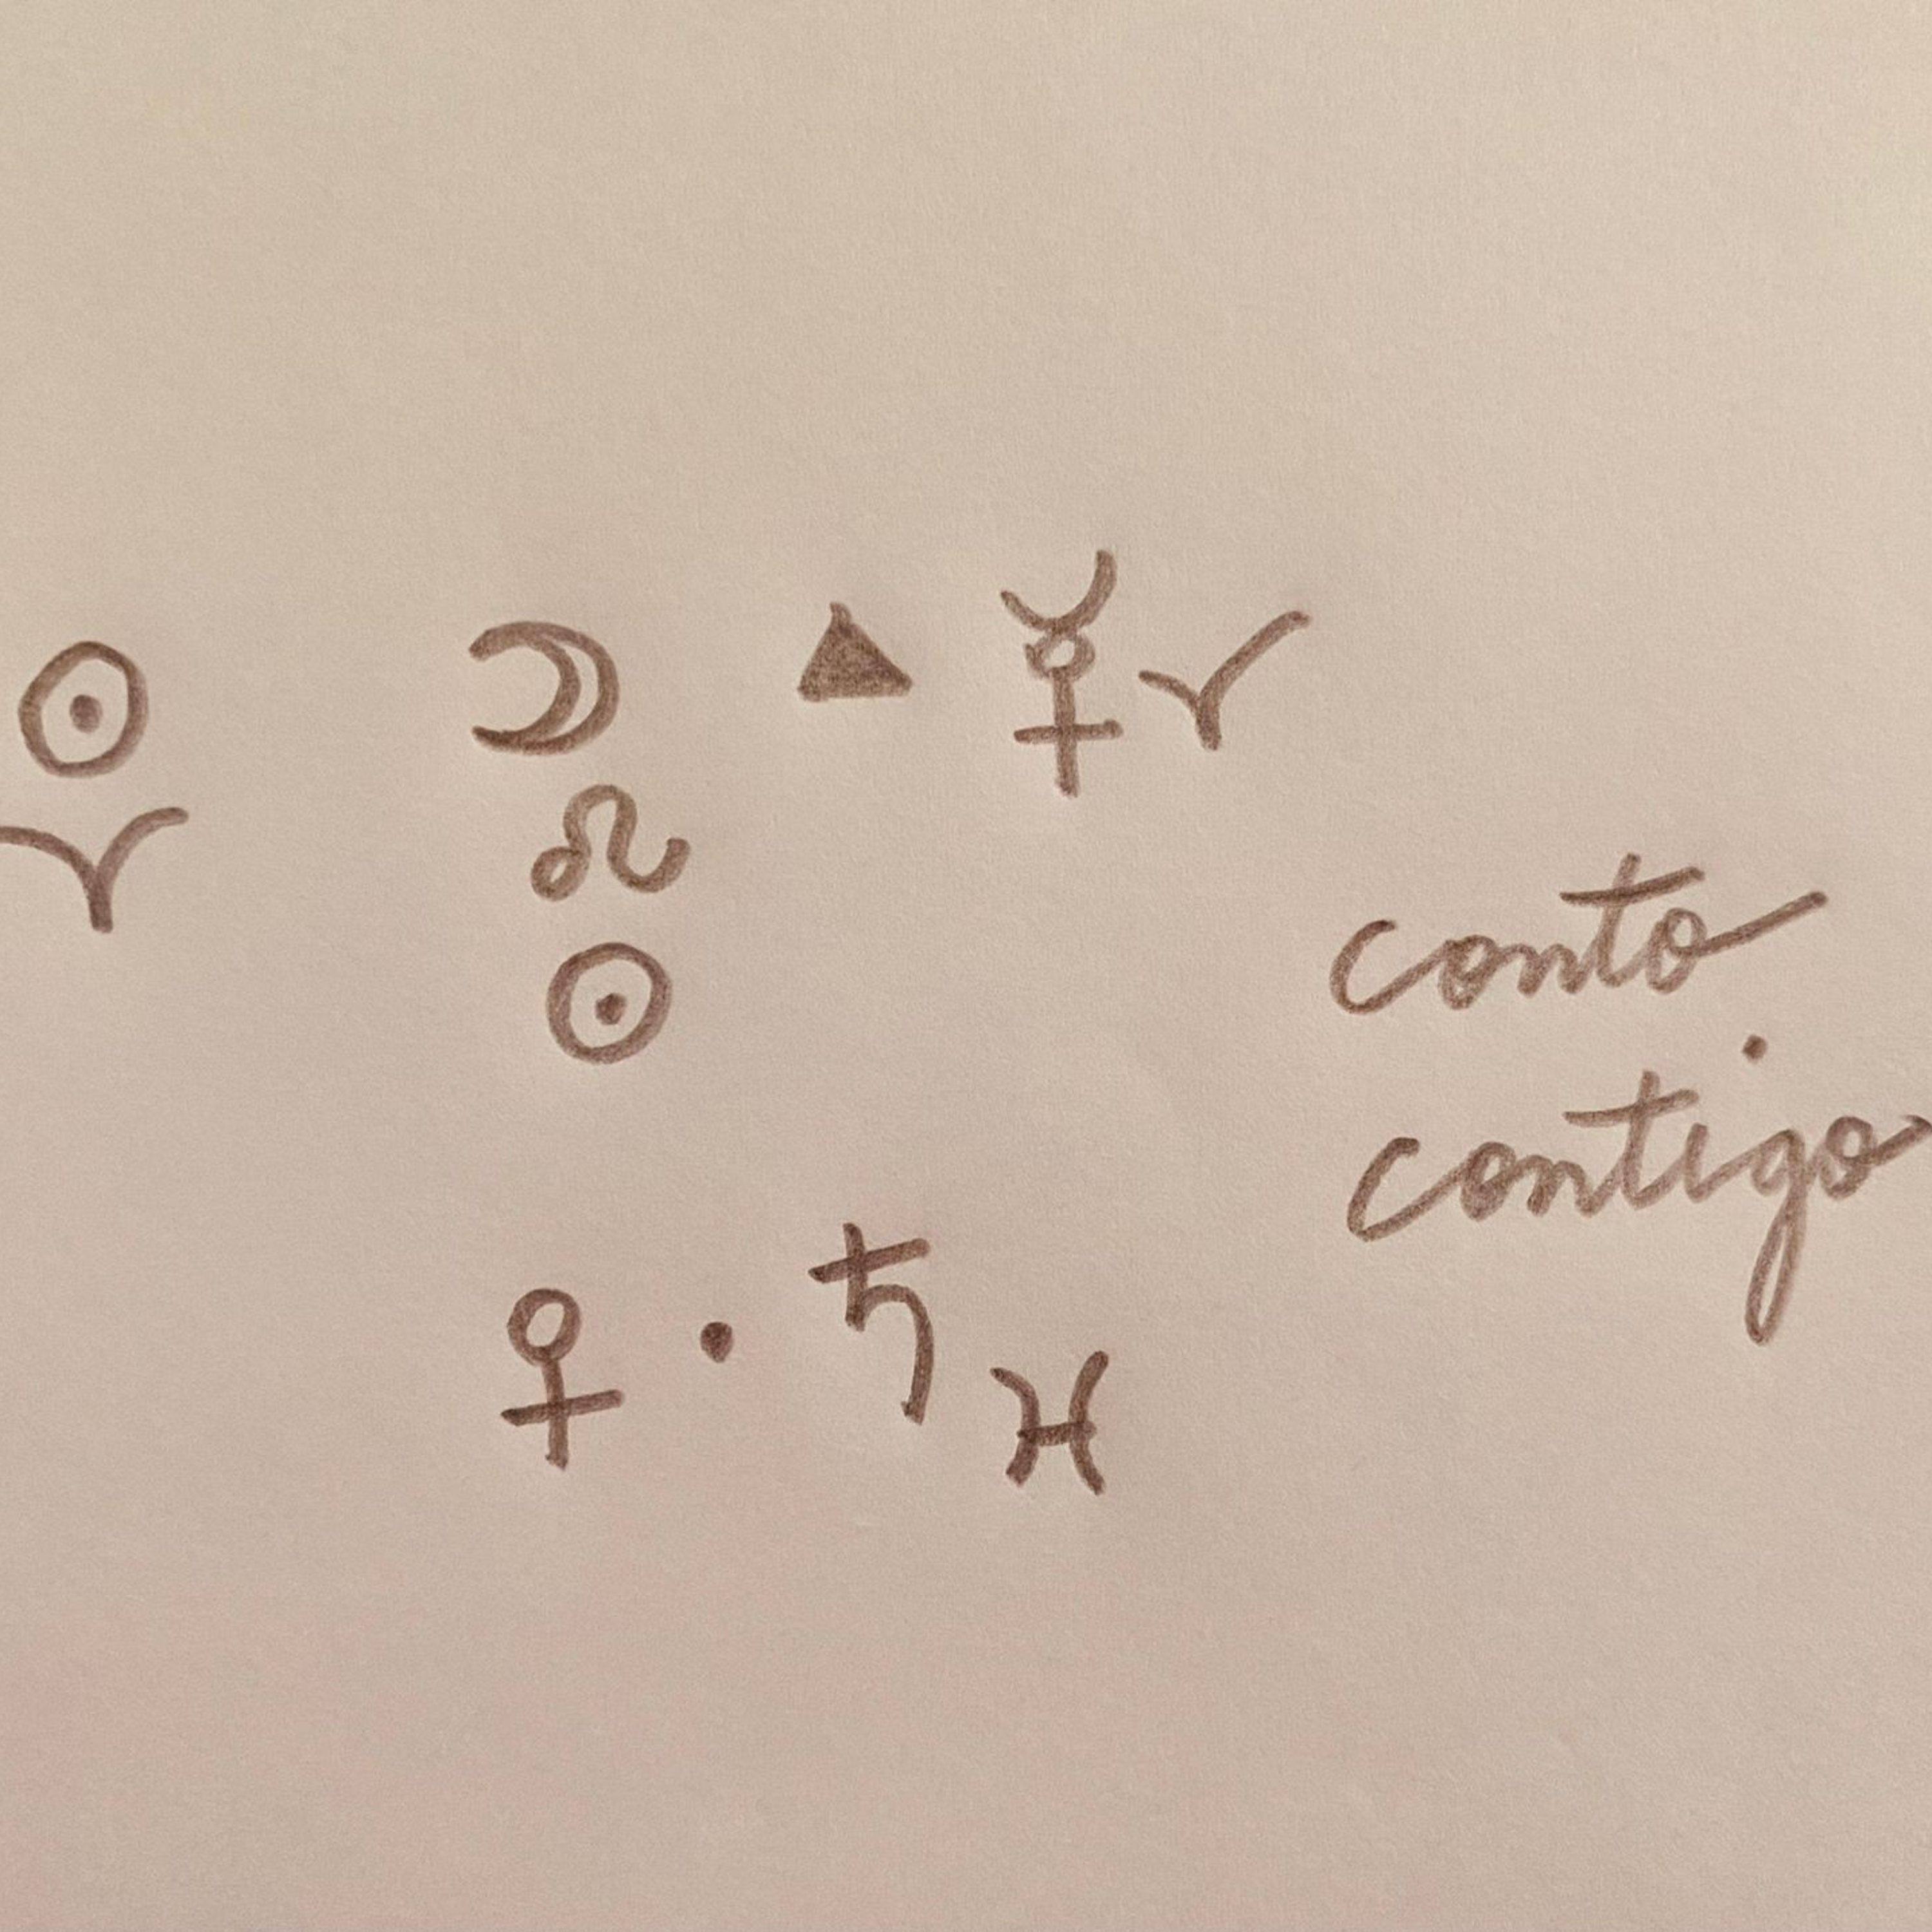 ☉ ☽ ▲ ☿ ♈
♈ ♌
☉
conto
contigo
♀ · ♄ ♓